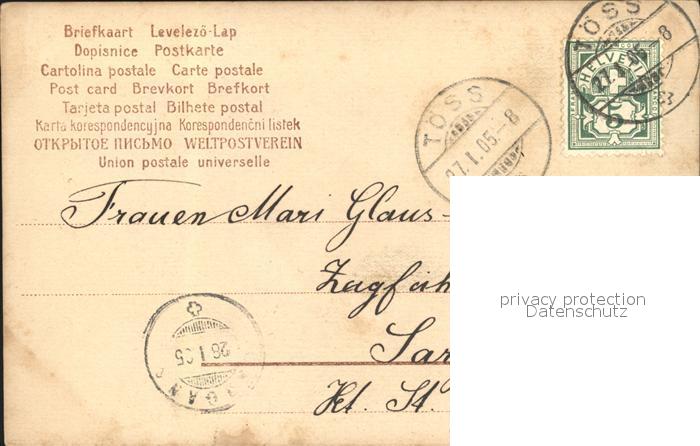 Briefkaart Levelező-Lap
Dopisnice Postkarte
Cartolina postale Carte postale
Post card Brevkort Brefkort
Tarjeta postal Bilhete postal
Karta korespondencyjna Korespondenční listek
ОТКРЫТОЕ ПИСЬМО WELTPOSTVEREIN
Union postale universelle
TÖSS
27.I.05.-8
TÖSS
-8
HELVETIA
5
Frauen Mari Glaus-
privacy protection
Datenschutz
Sar
Kt. St.
26.I.05